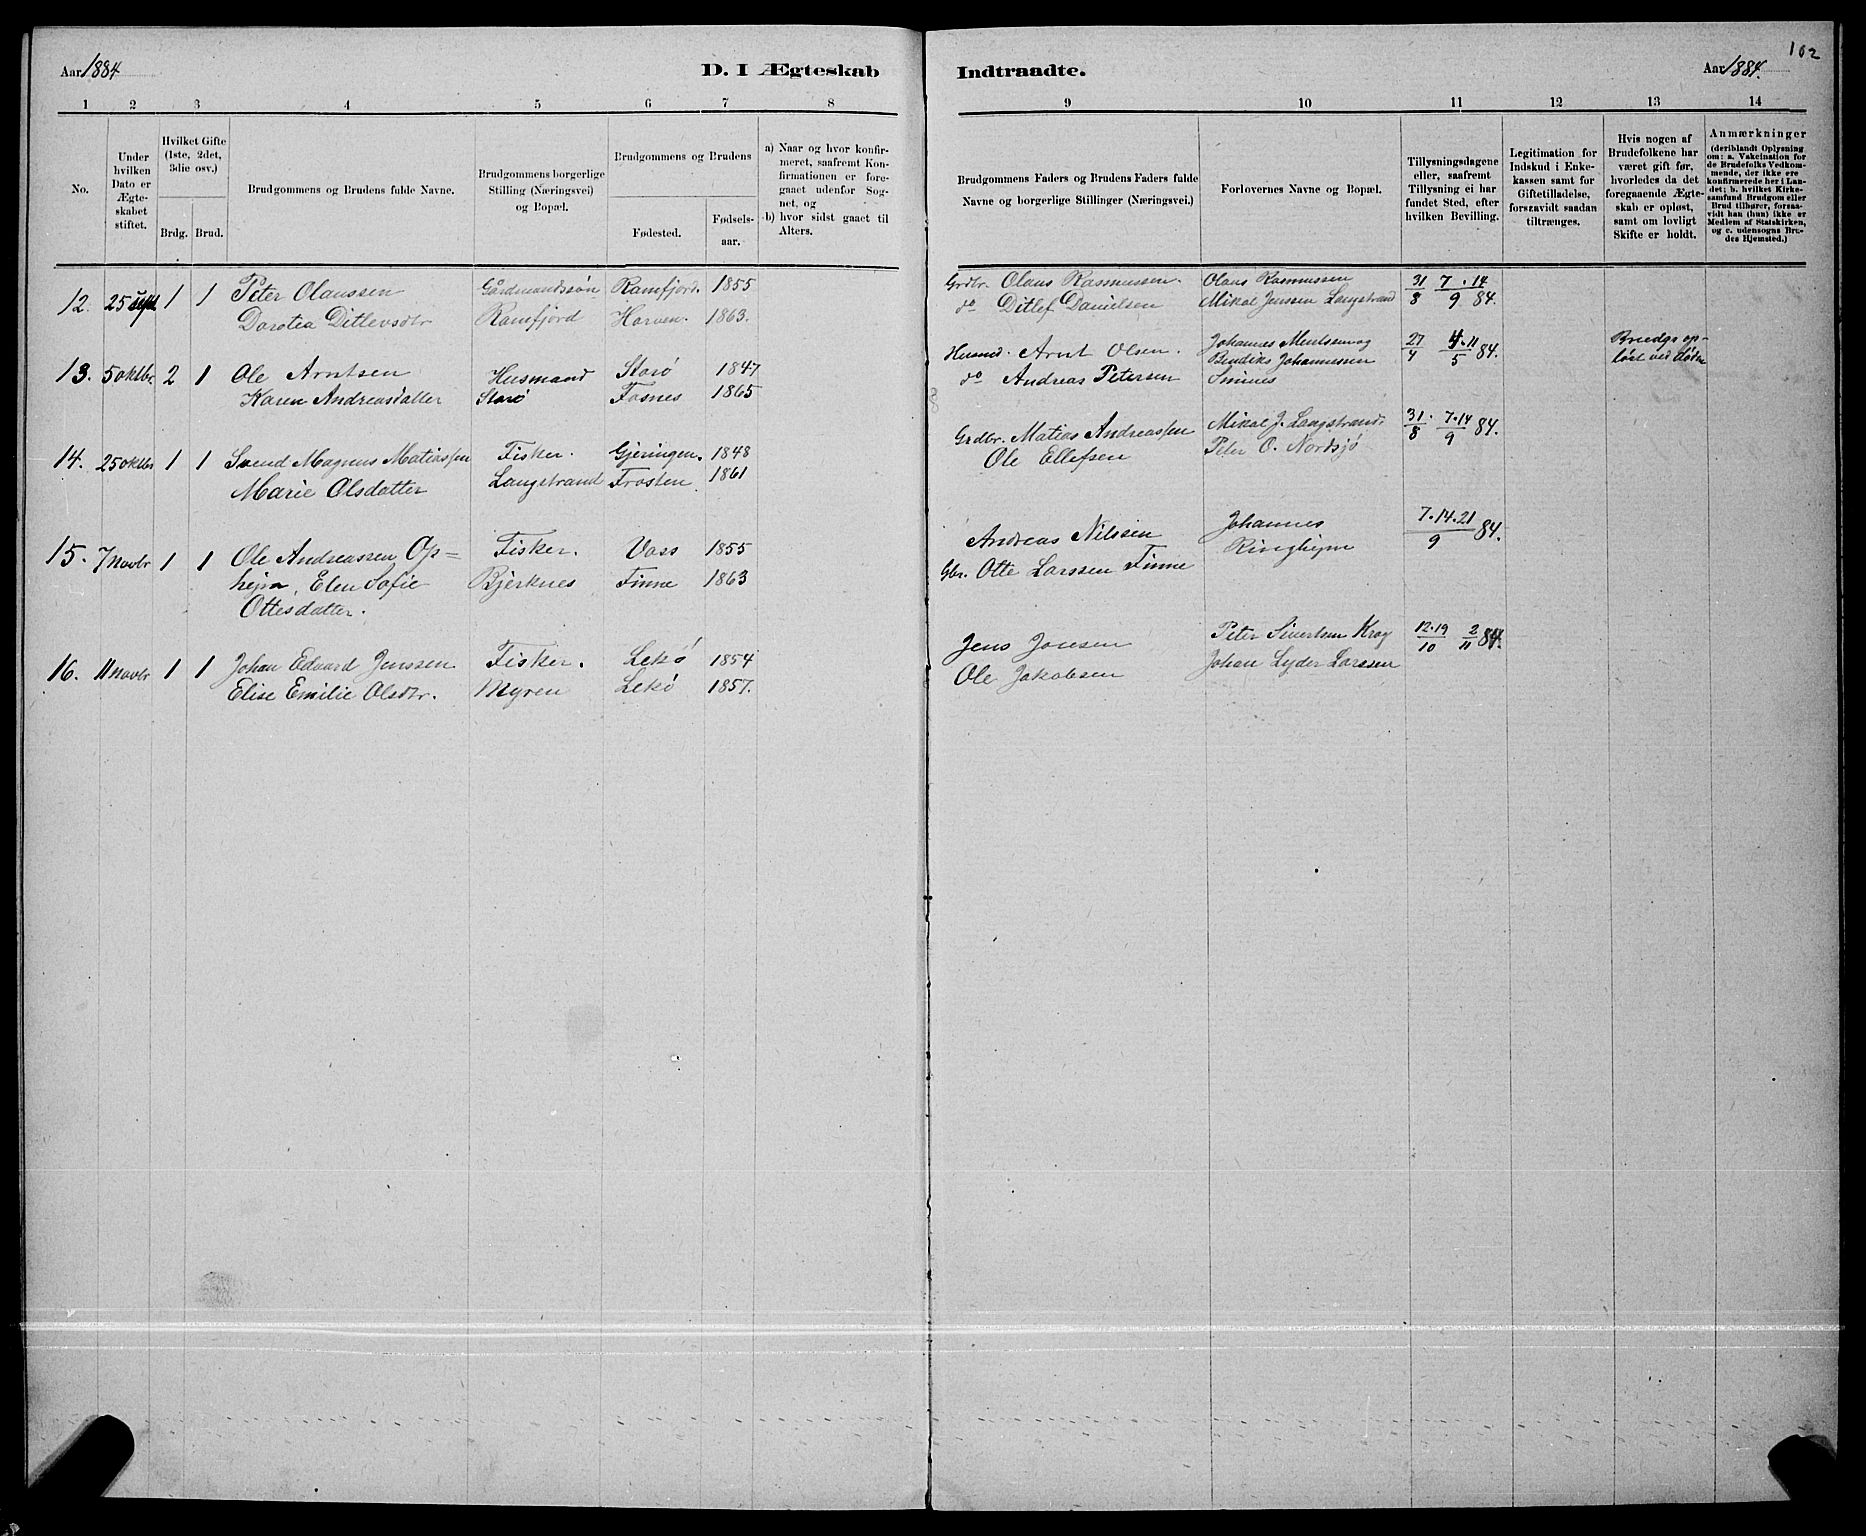 102
Aar 1884
D. I Ægteskab
Indtraadte.
Aar 1884.
1 2 3 4 5 6 7 8
9 10 11 12 13 14
No.
Under
hvilken
Dato er
Ægte-
skabet
stiftet.
Hvilket Gifte
(1ste, 2det,
3die osv.)
Brdg. Brud.
Brudgommens og Brudens fulde Navne.
Brudgommens borgerlige
Stilling (Næringsvei)
og Bopæl.
Brudgommens og Brudens
Fødested.
Fødsels-
aar.
a) Naar og hvor konfir-
meret, saafremt Kon-
firmationen er fore-
gaaet udenfor Sog-
net, og
b) hvor sidst gaaet til
Alters.
Brudgommens Faders og Brudens Faders fulde
Navne og borgerlige Stillinger (Næringsvei.)
Forlovernes Navne og Bopæl.
Tillysningsdagene
eller, saafremt
Tillysning ei har
fundet Sted, efter
hvilken Bevilling.
Legitimation for
Indskud i Enke-
kassen samt for
Giftetilladelse,
forsaavidt saadan
tiltrænges.
Hvis nogen af
Brudefolkene har
været gift før,
hvorledes da det
foregaaende Ægte-
skab er opløst,
samt om lovligt
Skifte er holdt.
Anmærkninger
(deriblandt Oplysning
om: a. Vakcination for
de Brudefolks Vedkom-
mende, der ikke ere
konfirmerede her i Lan-
det; b. hvilket Kirke-
samfund Brudgom eller
Brud tilhører, forsaa-
vidt han (hun) ikke er
Medlem af Statskirken,
og c. udensogns Bru-
des Hjemsted.)
12. 25 sept 1 1 Peter Olaussen Gårdmandssön Ramfjord. 1855
Dorotea Ditlevsdtr Ramfjord Horven. 1863.
Grdbr. Olaus Rasmussen. Olaus Rasmussen 31 7 . 14
do Ditlef Danielsen Mikal Jenssen Langstrand 8 9 84.
13. 5 oktbr 2 1 Ole Arntsen Husmand Storö 1847
Karen Andreasdatter Storö Fosnes 1865
Husmd. Arnt Olsen. Johannes og 27 4.11 84.
do Andreas Petersen Bendiks Johannessen 4 5
Brudgs op-
löst ved
14. 25 oktbr 1 1 Svend Magnus Matiassen Fisker. Gjeringen. 1848
Marie Olsdatter Langstrand Frosten 1861
Grdbr. Matias Andreassen Mikal J. Langstrand. 31. 7.14 84.
Ole Ellefsen Peter O. Nordsjö 8 9
15. 7 novbr 1 1 Ole Andreassen Op= Fisker. Voss 1855
hejm, Elen Sofie Bjerknes Finne 1863
Ottesdatter.
Andreas Nilssen Johannes 7.14.21 84.
Gbr. Otte Larssen Finne Ringhejm 9
16. 11 novbr 1 1 Johan Edvard Jenssen Fisker. Lekö 1854
Elise Emilie Olsdtr. Myren Lekö 1857.
Jens Jonsen Peter Sivertsen Krog 12.19 2 84.
Ole Jakobsen Johan Lyder Larssen 10 11